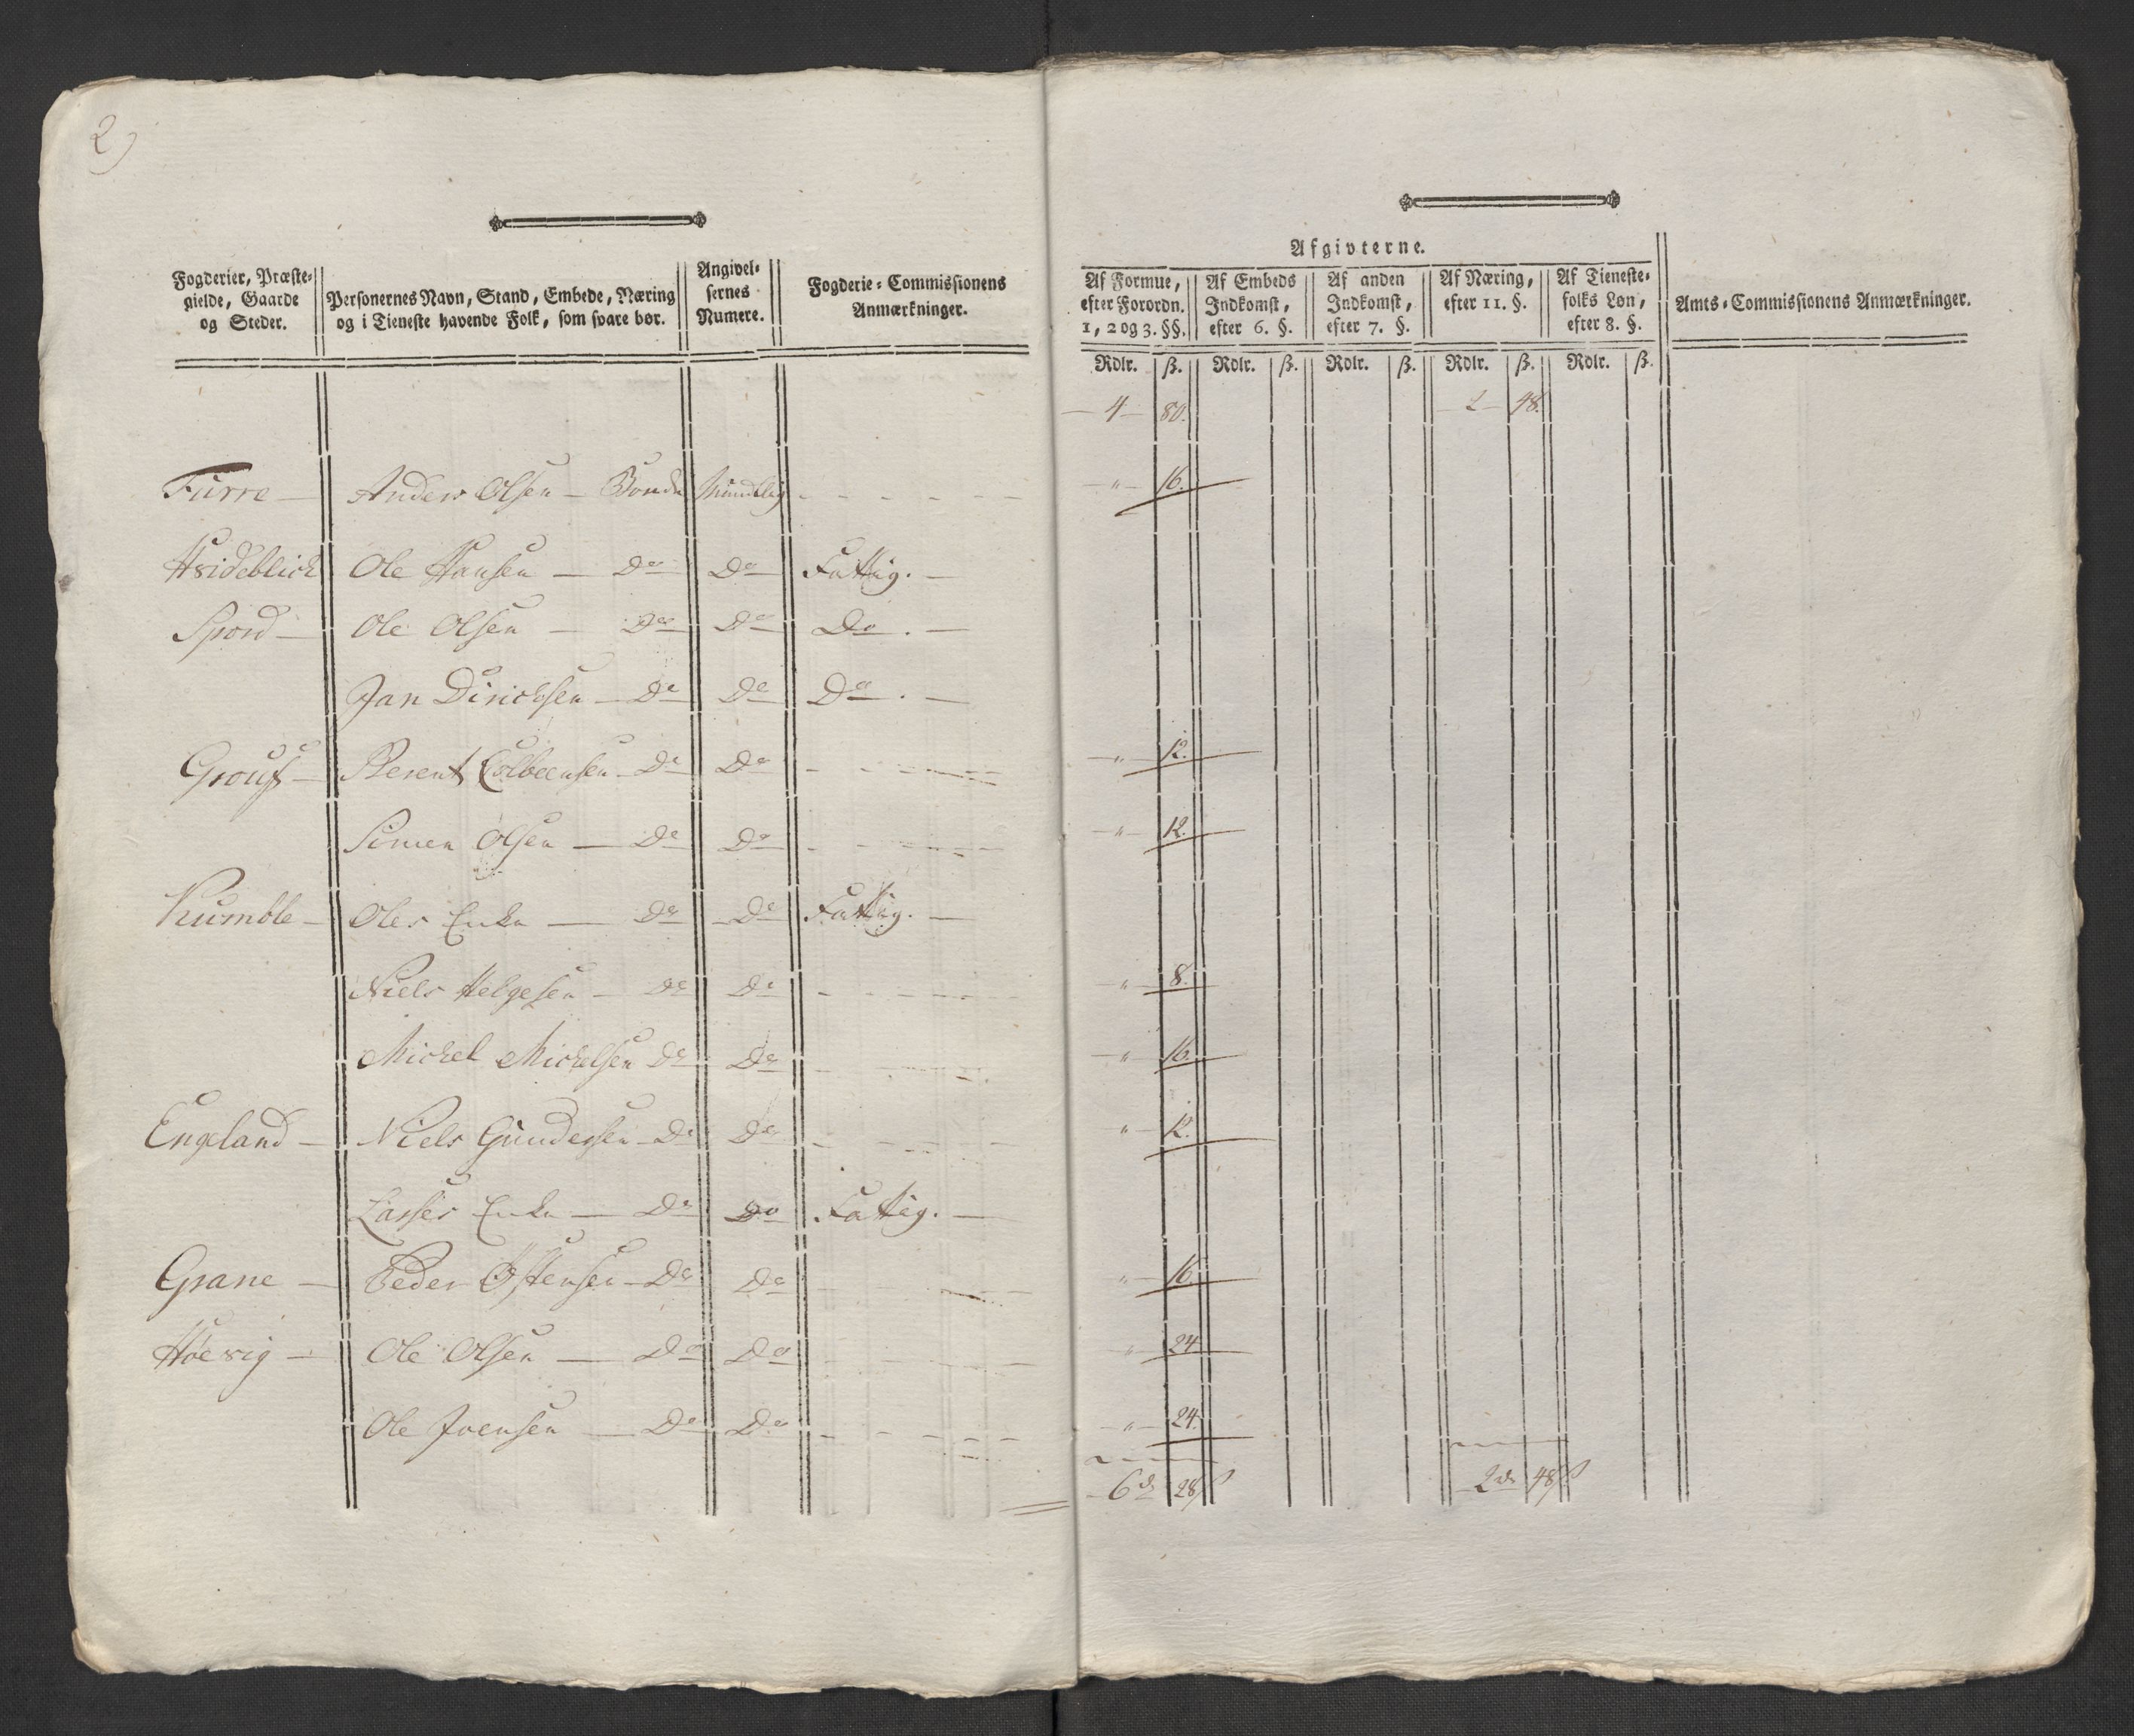 2)
Fogderier, Præste-
gielde, Gaarde
og Steder.
Personernes Navn, Stand, Embede, Næring
og i Tieneste havende Folk, som svare bør.
Angivel-
sernes
Numere.
Fogderie-Commissionens
Anmærkninger.
Afgivterne.
Af Formue,
efter Forordn.
1, 2 og 3. §§.
Af Embeds
Indkomst,
efter 6. §.
Af anden
Indkomst,
efter 7. §.
Af Næring,
efter 11. §.
Af Tieneste-
folks Løn,
efter 8. §.
Amts-Commissionens Anmærkninger.
Rdlr. ß. Rdlr. ß. Rdlr. ß. Rdlr. ß. Rdlr. ß.
4 80. 2 48.
Furre Anders Olsen Bonde Mundtlig " 16.
Hsideblich Ole Hansen Do Do Fattig.
Spord Ole Olsen Do Do Do.
Jan Dirichsen Do Do Do.
Grouf Berent Colbeensen Do Do " 12.
Simen Olsen Do Do " 12.
Kumble Oles Enke Do Do Fattig.
Niels Helgesen Do Do " 8.
Michel Michelsen Do Do " 16.
Engeland Niels Gundersen Do Do " 12.
Lasses Enke Do Do Fattig.
Grane Peder Østensen Do Do " 16.
Høevig Ole Olsen Do Do " 24
Ole Joensen Do Do " 24.
6 d 28 ß 2 d 48 ß